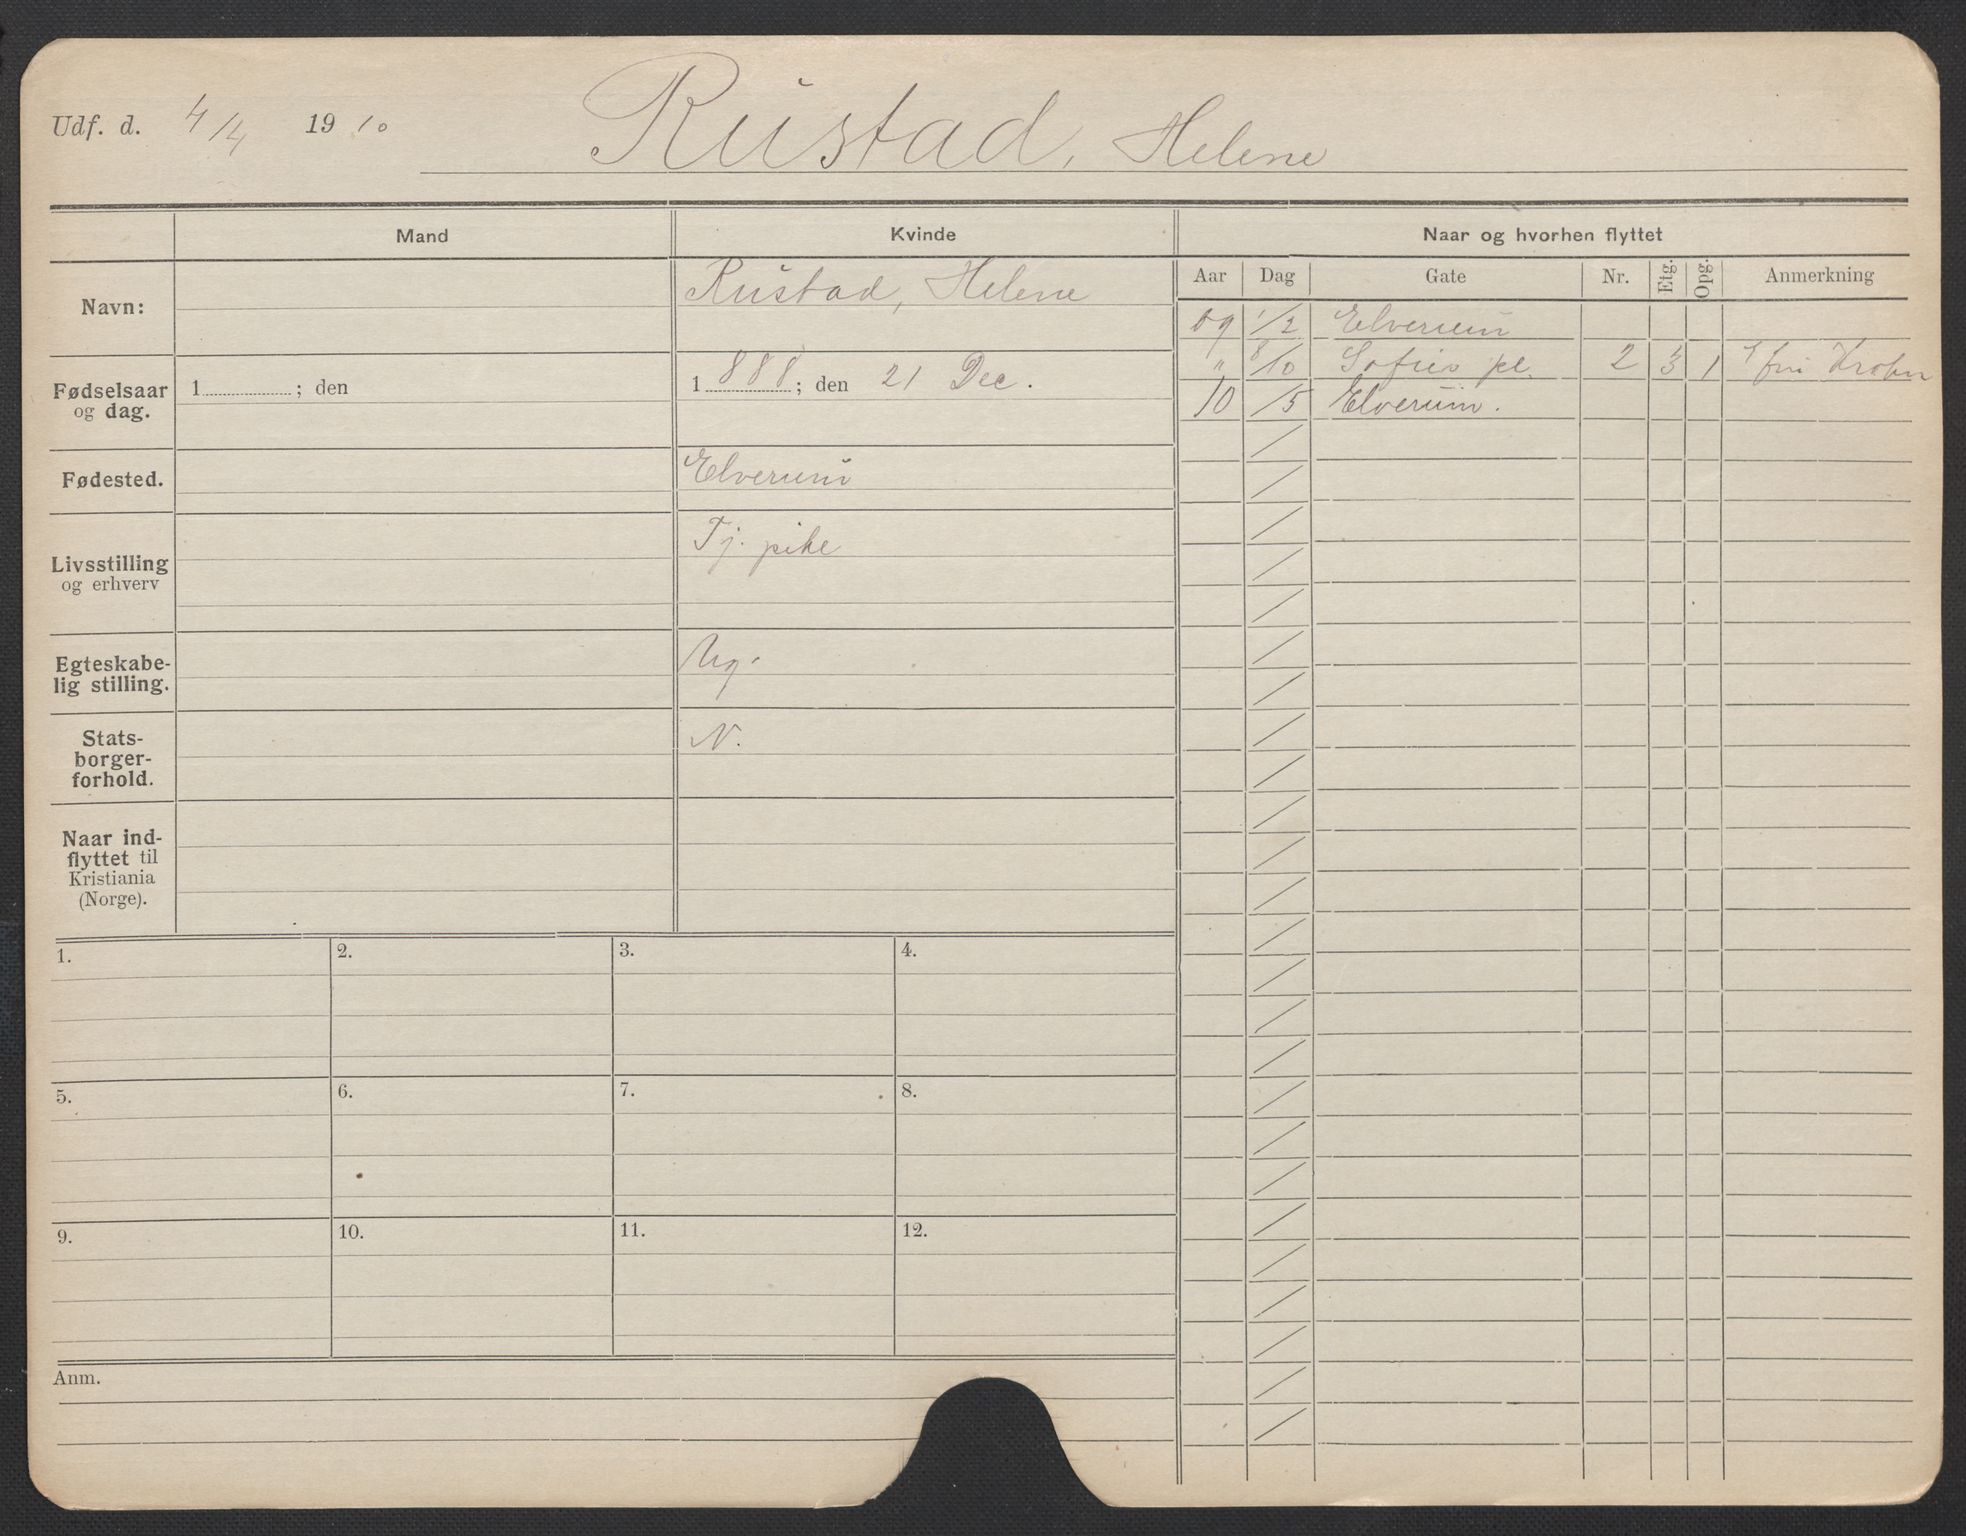 Udf. d. 4/4 1910 Rustad, Helene
Mand Kvinde Naar og hvorhen flyttet
Aar Dag Gate Nr. Etg. Opg. Anmerkning
Navn: Rustad, Helene
09 1/2 Elverum
" 8/10 Sofies pl. 2 3 1 fru Krohn
10 /5 Elverum.
Fødselsaar
og dag.
1 ; den
1888; den 21 Dec.
Fødested. Elverum
Livsstilling
og erhverv
Tj. pike
Egteskabe-
lig stilling.
Ug.
Stats-
borger-
forhold.
N.
Naar ind-
flyttet til
Kristiania
(Norge).
1. 2. 3. 4.
5. 6. 7. 8.
9. 10. 11. 12.
Anm.